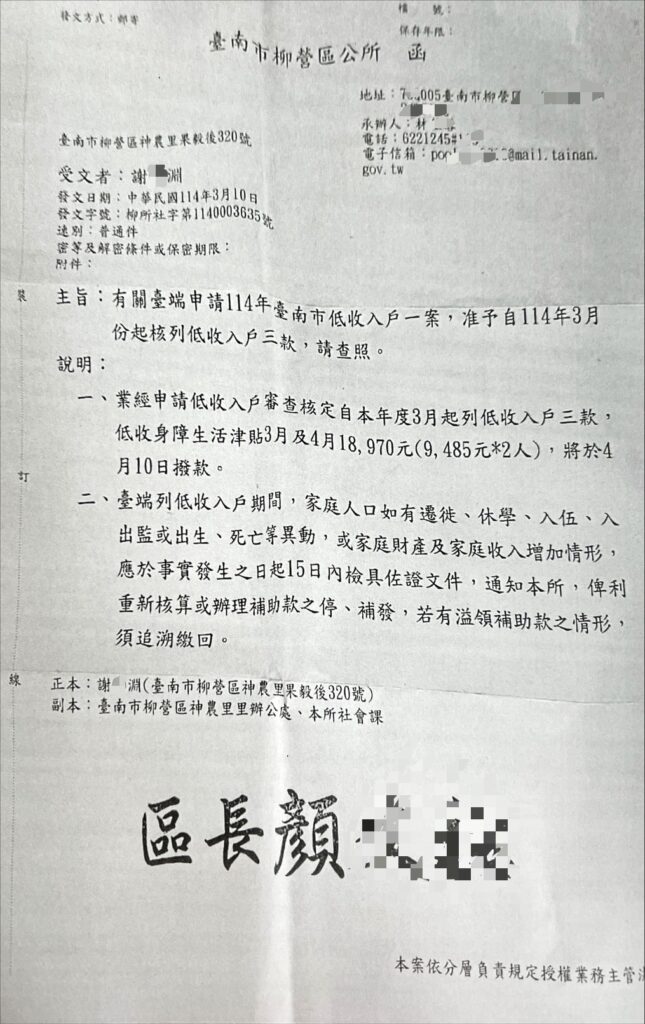 發文方式：郵寄
檔　　號：
保存年限：
臺南市柳營區公所　函
地址：7 005臺南市柳營區
承辦人：林
電話：6221245#
電子信箱：po @mail.tainan.
gov.tw
臺南市柳營區神農里果毅後320號
受文者：謝 淵
發文日期：中華民國114年3月10日
發文字號：柳所社字第1140003635號
速別：普通件
密等及解密條件或保密期限：
附件：
主旨：有關臺端申請114年臺南市低收入戶一案，准予自114年3月
份起核列低收入戶三款，請查照。
說明：
一、業經申請低收入戶審查核定自本年度3月起列低收入戶三款，
低收身障生活津貼3月及4月18,970元(9,485元*2人)，將於4
月10日撥款。
二、臺端列低收入戶期間，家庭人口如有遷徙、休學、入伍、入
出監或出生、死亡等異動，或家庭財產及家庭收入增加情形，
應於事實發生之日起15日內檢具佐證文件，通知本所，俾利
重新核算或辦理補助款之停、補發，若有溢領補助款之情形，
須追溯繳回。
裝
訂
線
正本：謝 淵(臺南市柳營區神農里果毅後320號)
副本：臺南市柳營區神農里里辦公處、本所社會課
區長顏
本案依分層負責規定授權業務主管